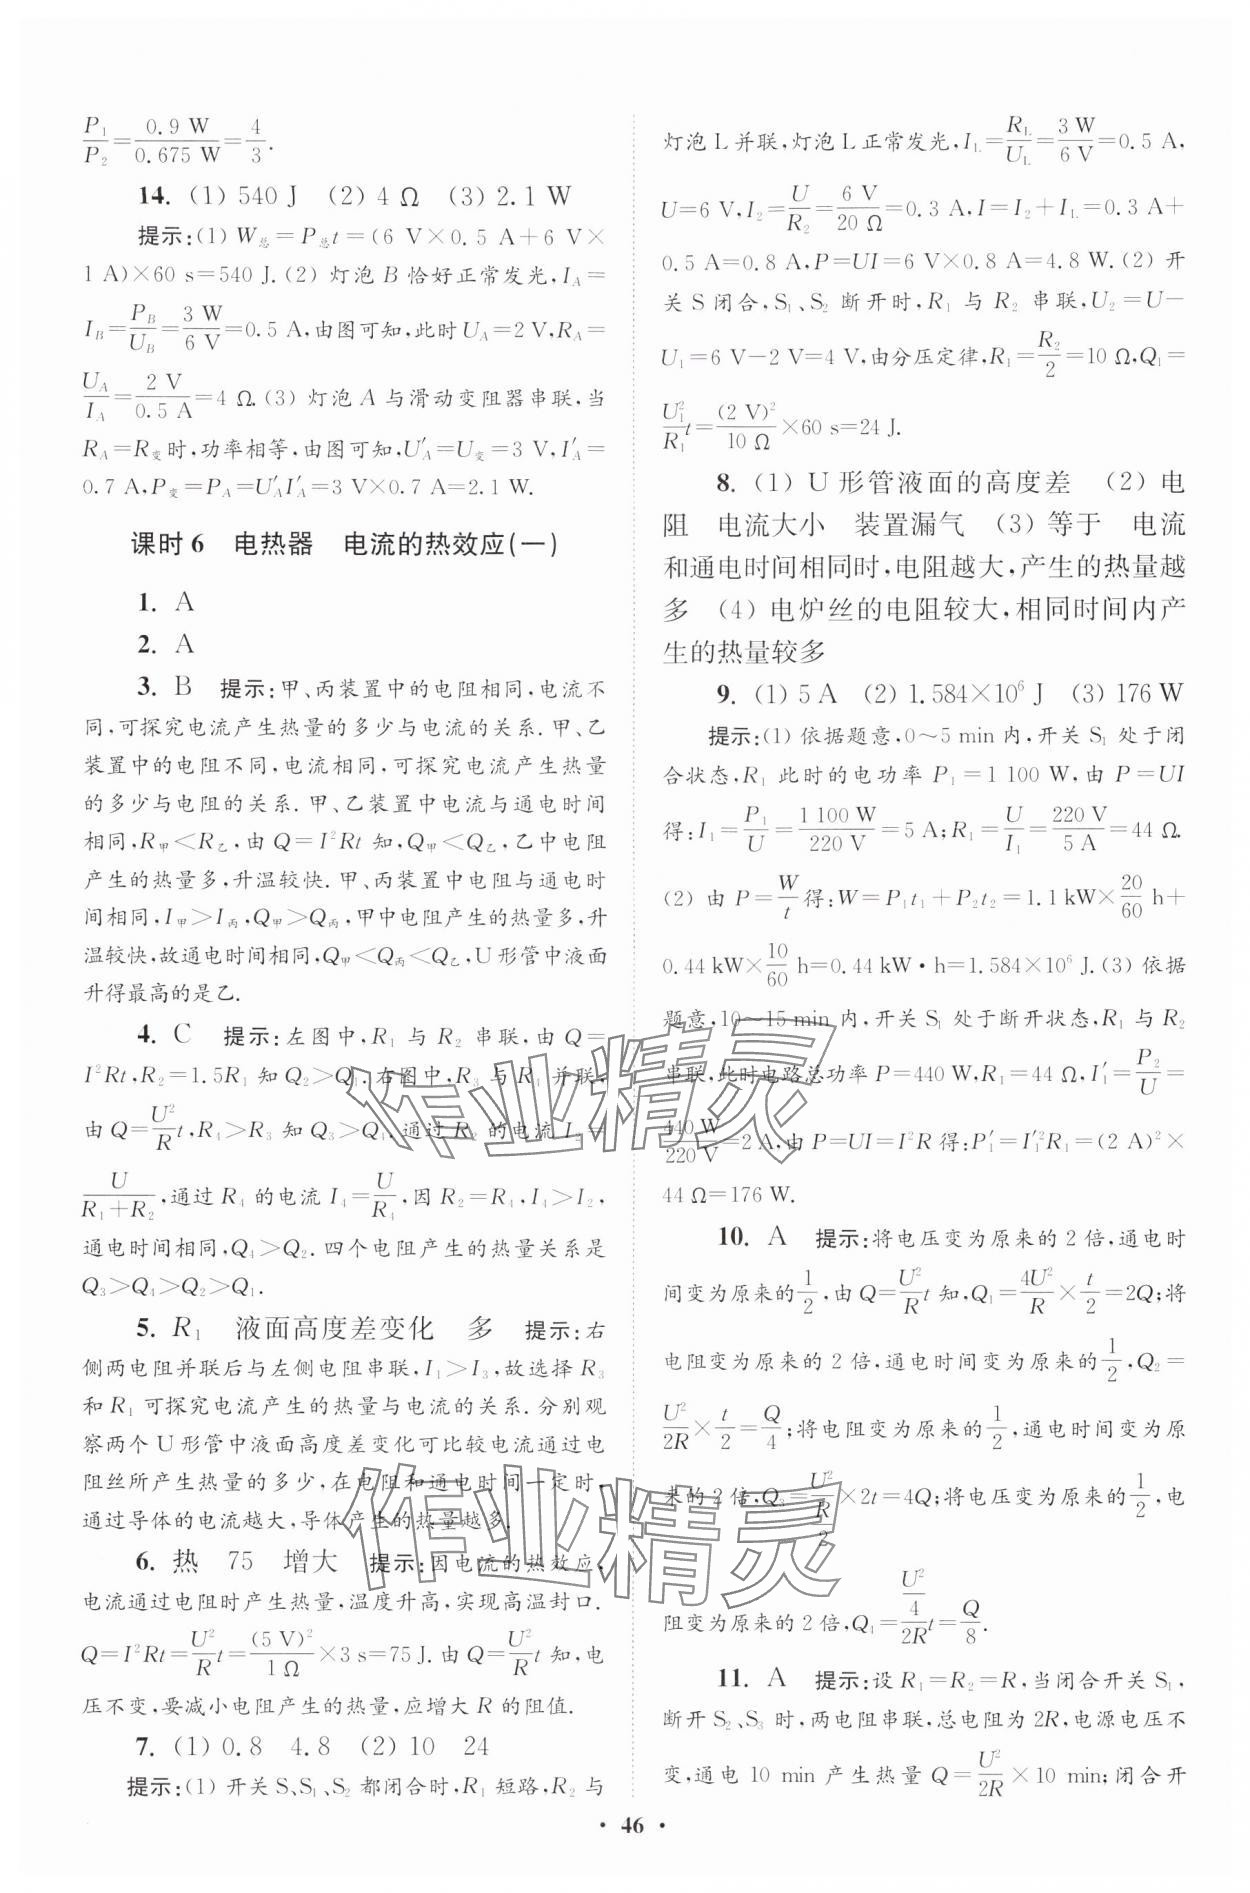 P₁/P₂=0.9 W/0.675 W=4/3.
14. (1) 540 J (2) 4 Ω (3) 2.1 W
提示:(1) W总=P总t=(6 V×0.5 A+6 V×
1 A)×60 s=540 J.(2) 灯泡 B 恰好正常发光,I_A=
I_B=P_B/U_B=3 W/6 V=0.5 A,由图可知,此时 U_A=2 V,R_A=
U_A/I_A=2 V/0.5 A=4 Ω.(3) 灯泡 A 与滑动变阻器串联,当
R_A=R变时,功率相等,由图可知,U′_A=U变=3 V,I′_A=
0.7 A,P变=P_A=U′_AI′_A=3 V×0.7 A=2.1 W.
课时6 电热器 电流的热效应(一)
1. A
2. A
3. B 提示:甲、丙装置中的电阻相同,电流不
同,可探究电流产生热量的多少与电流的关系.甲、乙
装置中的电阻不同,电流相同,可探究电流产生热量
的多少与电阻的关系.甲、乙装置中电流与通电时间
相同,R甲<R乙,由 Q=I²Rt 知,Q甲<Q乙,乙中电阻
产生的热量多,升温较快.甲、丙装置中电阻与通电时
间相同,I甲>I丙,Q甲>Q丙,甲中电阻产生的热量多,升
温较快,故通电时间相同,Q甲<Q丙<Q乙,U 形管中液面
升得最高的是乙.
4. C 提示:左图中,R₁ 与 R₂ 串联,由 Q=
I²Rt,R₂=1.5R₁ 知 Q₂>Q₁.右图中,R₃ 与 R₄ 并联,
由 Q=U²/R t,R₄>R₃ 知 Q₃>Q₄.通过 R₂ 的电流 I₂=
U/(R₁+R₂),通过 R₄ 的电流 I₄=U/R₄,因 R₂=R₄,I₄>I₂,
通电时间相同,Q₄>Q₂.四个电阻产生的热量关系是
Q₃>Q₄>Q₂>Q₁.
5. R₁ 液面高度差变化 多 提示:右
侧两电阻并联后与左侧电阻串联,I₁>I₃,故选择 R₃
和 R₁ 可探究电流产生的热量与电流的关系.分别观
察两个 U 形管中液面高度差变化可比较电流通过电
阻丝所产生热量的多少,在电阻和通电时间一定时,
通过导体的电流越大,导体产生的热量越多.
6. 热 75 增大 提示:因电流的热效应,
电流通过电阻时产生热量,温度升高,实现高温封口.
Q=I²Rt=U²/R t=(5 V)²/1 Ω×3 s=75 J.由 Q=U²/R t 知,电
压不变,要减小电阻产生的热量,应增大 R 的阻值.
7. (1) 0.8 4.8 (2) 10 24
提示:(1) 开关 S、S₁、S₂ 都闭合时,R₁ 短路,R₂ 与
灯泡 L 并联,灯泡 L 正常发光,I_L=R_L/U_L=3 W/6 V=0.5 A,
U=6 V,I₂=U/R₂=6 V/20 Ω=0.3 A,I=I₂+I_L=0.3 A+
0.5 A=0.8 A,P=UI=6 V×0.8 A=4.8 W.(2) 开
关 S 闭合,S₁、S₂ 断开时,R₁ 与 R₂ 串联,U₂=U-
U₁=6 V-2 V=4 V,由分压定律,R₁=R₂/2=10 Ω,Q₁=
U₁²/R₁ t=(2 V)²/10 Ω×60 s=24 J.
8. (1) U 形管液面的高度差 (2) 电
阻 电流大小 装置漏气 (3) 等于 电流
和通电时间相同时,电阻越大,产生的热量越
多 (4) 电炉丝的电阻较大,相同时间内产
生的热量较多
9. (1) 5 A (2) 1.584×10⁶ J (3) 176 W
提示:(1) 依据题意,0~5 min 内,开关 S₁ 处于闭
合状态,R₁ 此时的电功率 P₁=1 100 W,由 P=UI
得:I₁=P₁/U=1 100 W/220 V=5 A;R₁=U/I₁=220 V/5 A=44 Ω.
(2) 由 P=W/t得:W=P₁t₁+P₂t₂=1.1 kW×20/60 h+
0.44 kW×10/60 h=0.44 kW·h=1.584×10⁶ J.(3) 依据
题意,10~15 min 内,开关 S₁ 处于断开状态,R₁ 与 R₂
串联,此时电路总功率 P=440 W,R₁=44 Ω,I′₁=P₂/U=
440 W/220 V=2 A,由 P=UI=I²R 得:P′₁=I′₁²R₁=(2 A)²×
44 Ω=176 W.
10. A 提示:将电压变为原来的 2 倍,通电时
间变为原来的1/2,由 Q=U²/R t 知,Q₁=4U²/R×t/2=2Q;将
电阻变为原来的 2 倍,通电时间变为原来的1/2,Q₂=
U²/2R×t/2=Q/4;将电阻变为原来的1/2,通电时间变为原
来的 2 倍,Q₃=U²/(R/2)×2t=4Q;将电压变为原来的1/2,电
阻变为原来的 2 倍,Q₄=(U²/4)/2R t=Q/8.
11. A 提示:设 R₁=R₂=R,当闭合开关 S₁,
断开 S₂、S₃ 时,两电阻串联,总电阻为 2R,电源电压不
变,通电 10 min 产生热量 Q=U²/2R×10 min;闭合开
· 46 ·
作业精灵
作业精灵